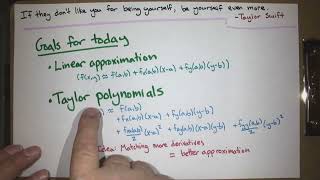 If they don't like you for being yourself, be yourself even more.
-Taylor Swift
Goals for today
• Linear approximation
(f(x,y) ≈ f(a,b) + fx(a,b)(x-a) + fy(a,b)(y-b)
• Taylor polynomials
≈ f(a,b)
+ fx(a,b)(x-a) + fy(a,b)(y-b)
+ fxx(a,b)/2 (x-a)² + fxy(a,b)(x-a)(y-b) + fyy(a,b)/2 (y-b)²
Idea: Matching more derivatives
= better approximation